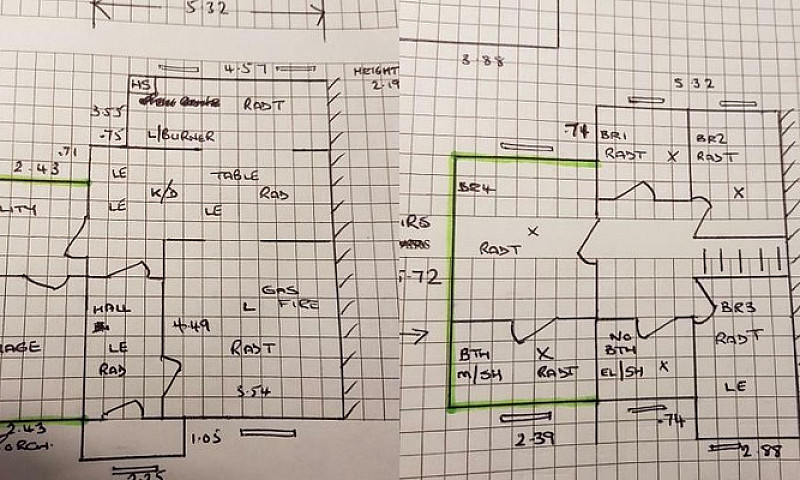 5.32
4.57
HEIGHT
2.19
HS
RADT
3.55
.75
L/BURNER
.71
2.43
LE
TABLE
K/D
RAD
LITY
LE
LE
GAS
FIRE
L
HALL
4.49
AGE
LE
RADT
RAD
3.54
2.43
ORCH.
1.05
2.25
3.88
5.32
.74
BR1
BR2
RADT
X
RADT
BR4
X
IRS
X
RADT
5.72
BR3
No
BTH
BTH
M/SH
X
RADT
EL/SH
X
RADT
LE
.74
2.39
2.88